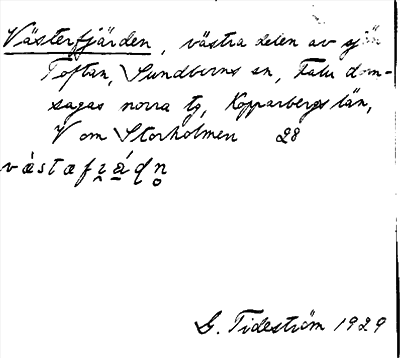 Västerfjärden, västra delen av sjön
Toftan, Sundborns sn, Falu dom-
sagas norra tg, Kopparbergs län,
V om Storholmen 28
G. Tideström 1929